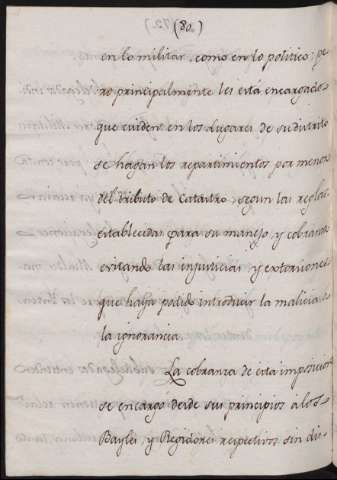 (80.)
en lo militar, como en lo politico; pe-
ro principalmente les está encargado
que cuiden en los Lugares de su distrito
se hagan los repartimientos por menor
del tributo de Catastro, segun las reglas
establecidas para su manejo y cobranza
evitando las injusticias y extorsiones
que haya podido introducir la malicia o
la ignorancia.
La cobranza de esta imposicion
se encargo desde sus principios a los
Bayles, y Regidores respectivos sin dis-